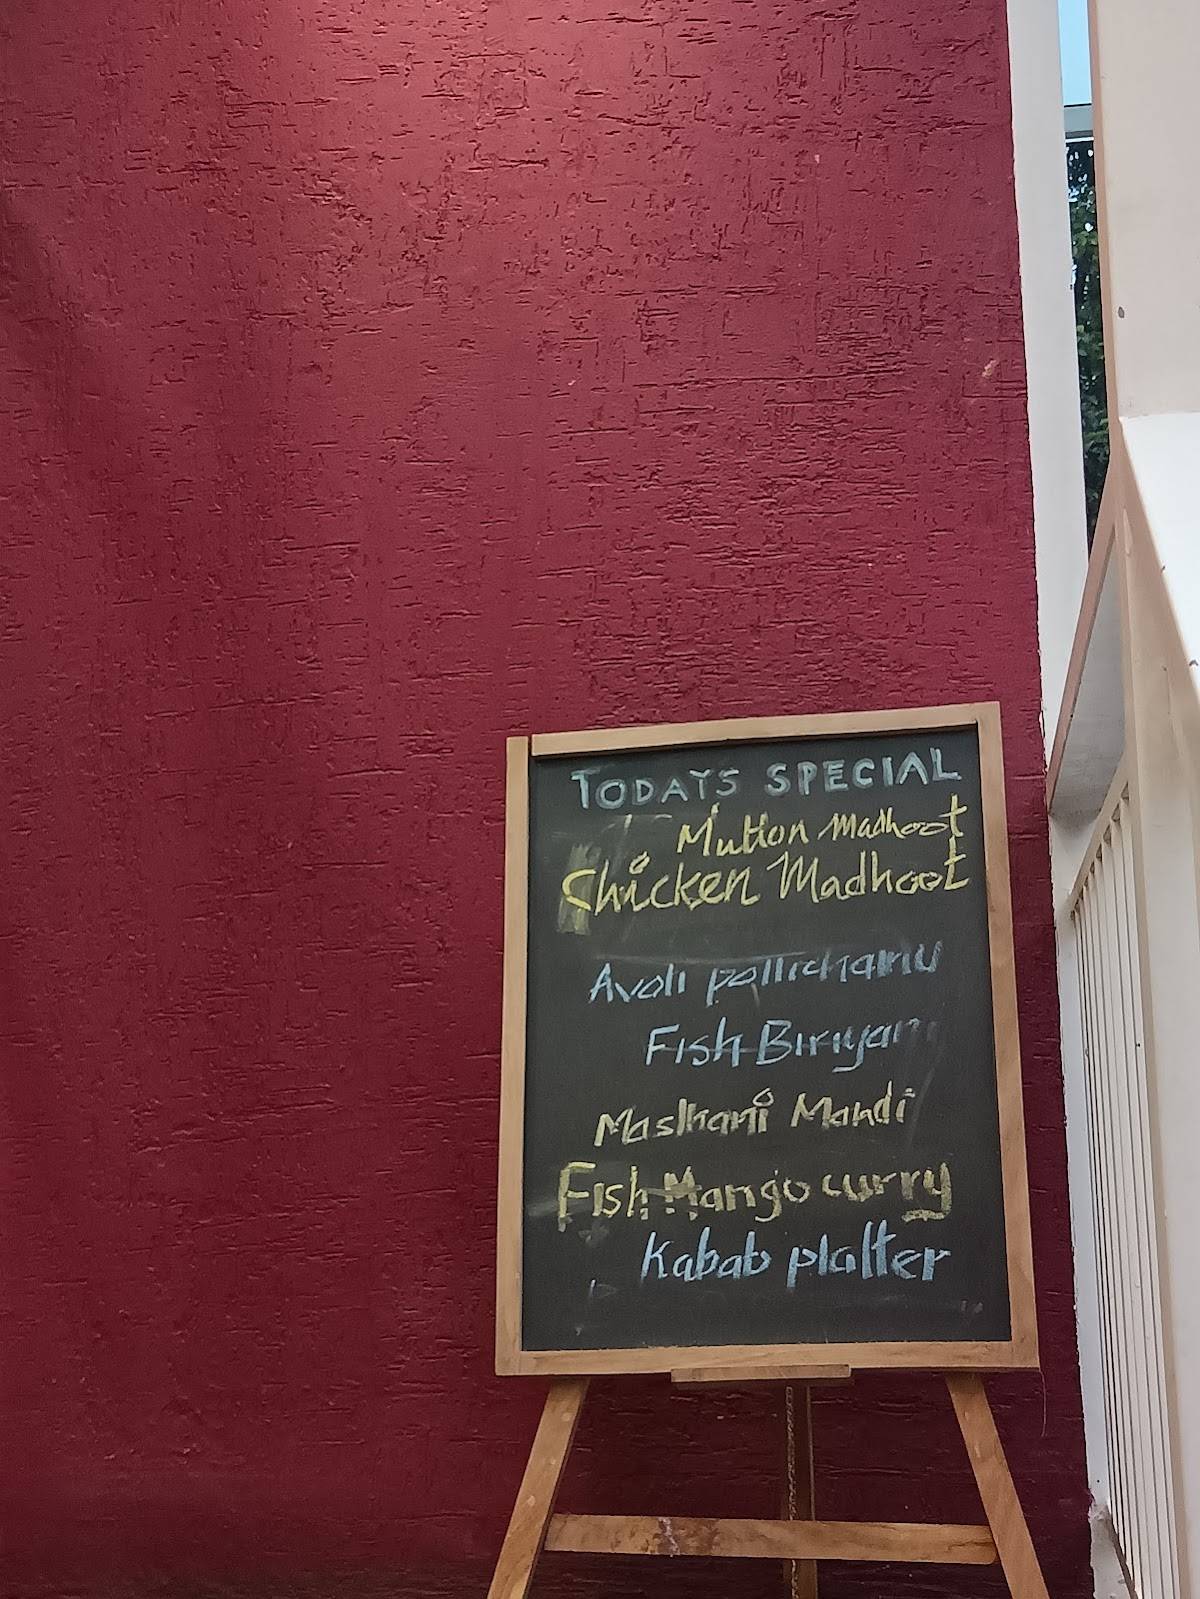 TODAYS SPECIAL
Mutton Madhoot
Chicken Madhoot
Avoli pollichathu
Fish Biriyani
Mashani Mandi
Fish Mango curry
Kabab platter